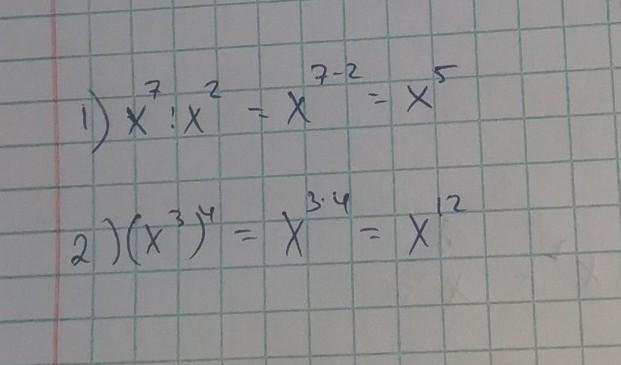 1) x⁷ : x² = x⁷⁻² = x⁵
2) (x³)⁴ = x³·⁴ = x¹²